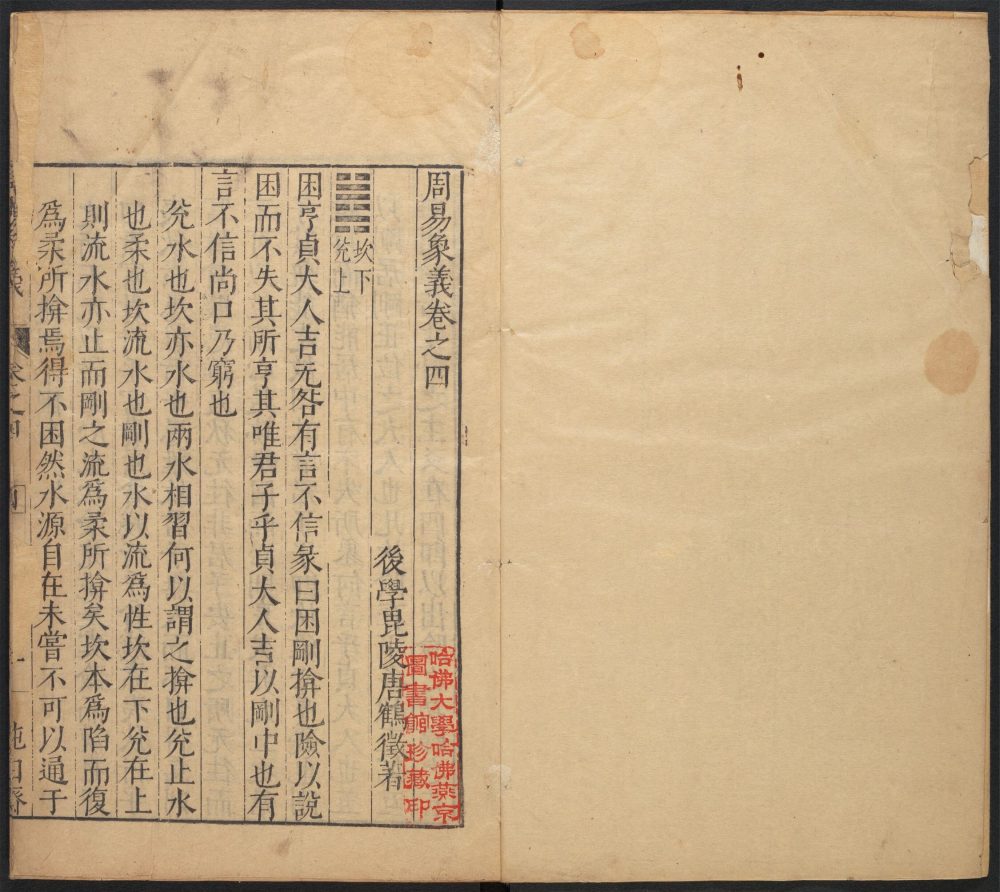 周易象義卷之四
後學毘陵唐鶴徵著
坎下
兊上
困亨貞大人吉无咎有言不信彖曰困剛揜也險以說
困而不失其所亨其唯君子乎貞大人吉以剛中也有
言不信尚口乃窮也
兊水也坎亦水也兩水相習何以謂之揜也兊止水
也柔也坎流水也剛也水以流爲性坎在下兊在上
則流水亦止而剛之流爲柔所揜矣坎本爲陷而復
爲柔所揜焉得不困然水源自在未嘗不可以通于
哈佛大學哈佛燕京
圖書館珍藏印
卷之四
一